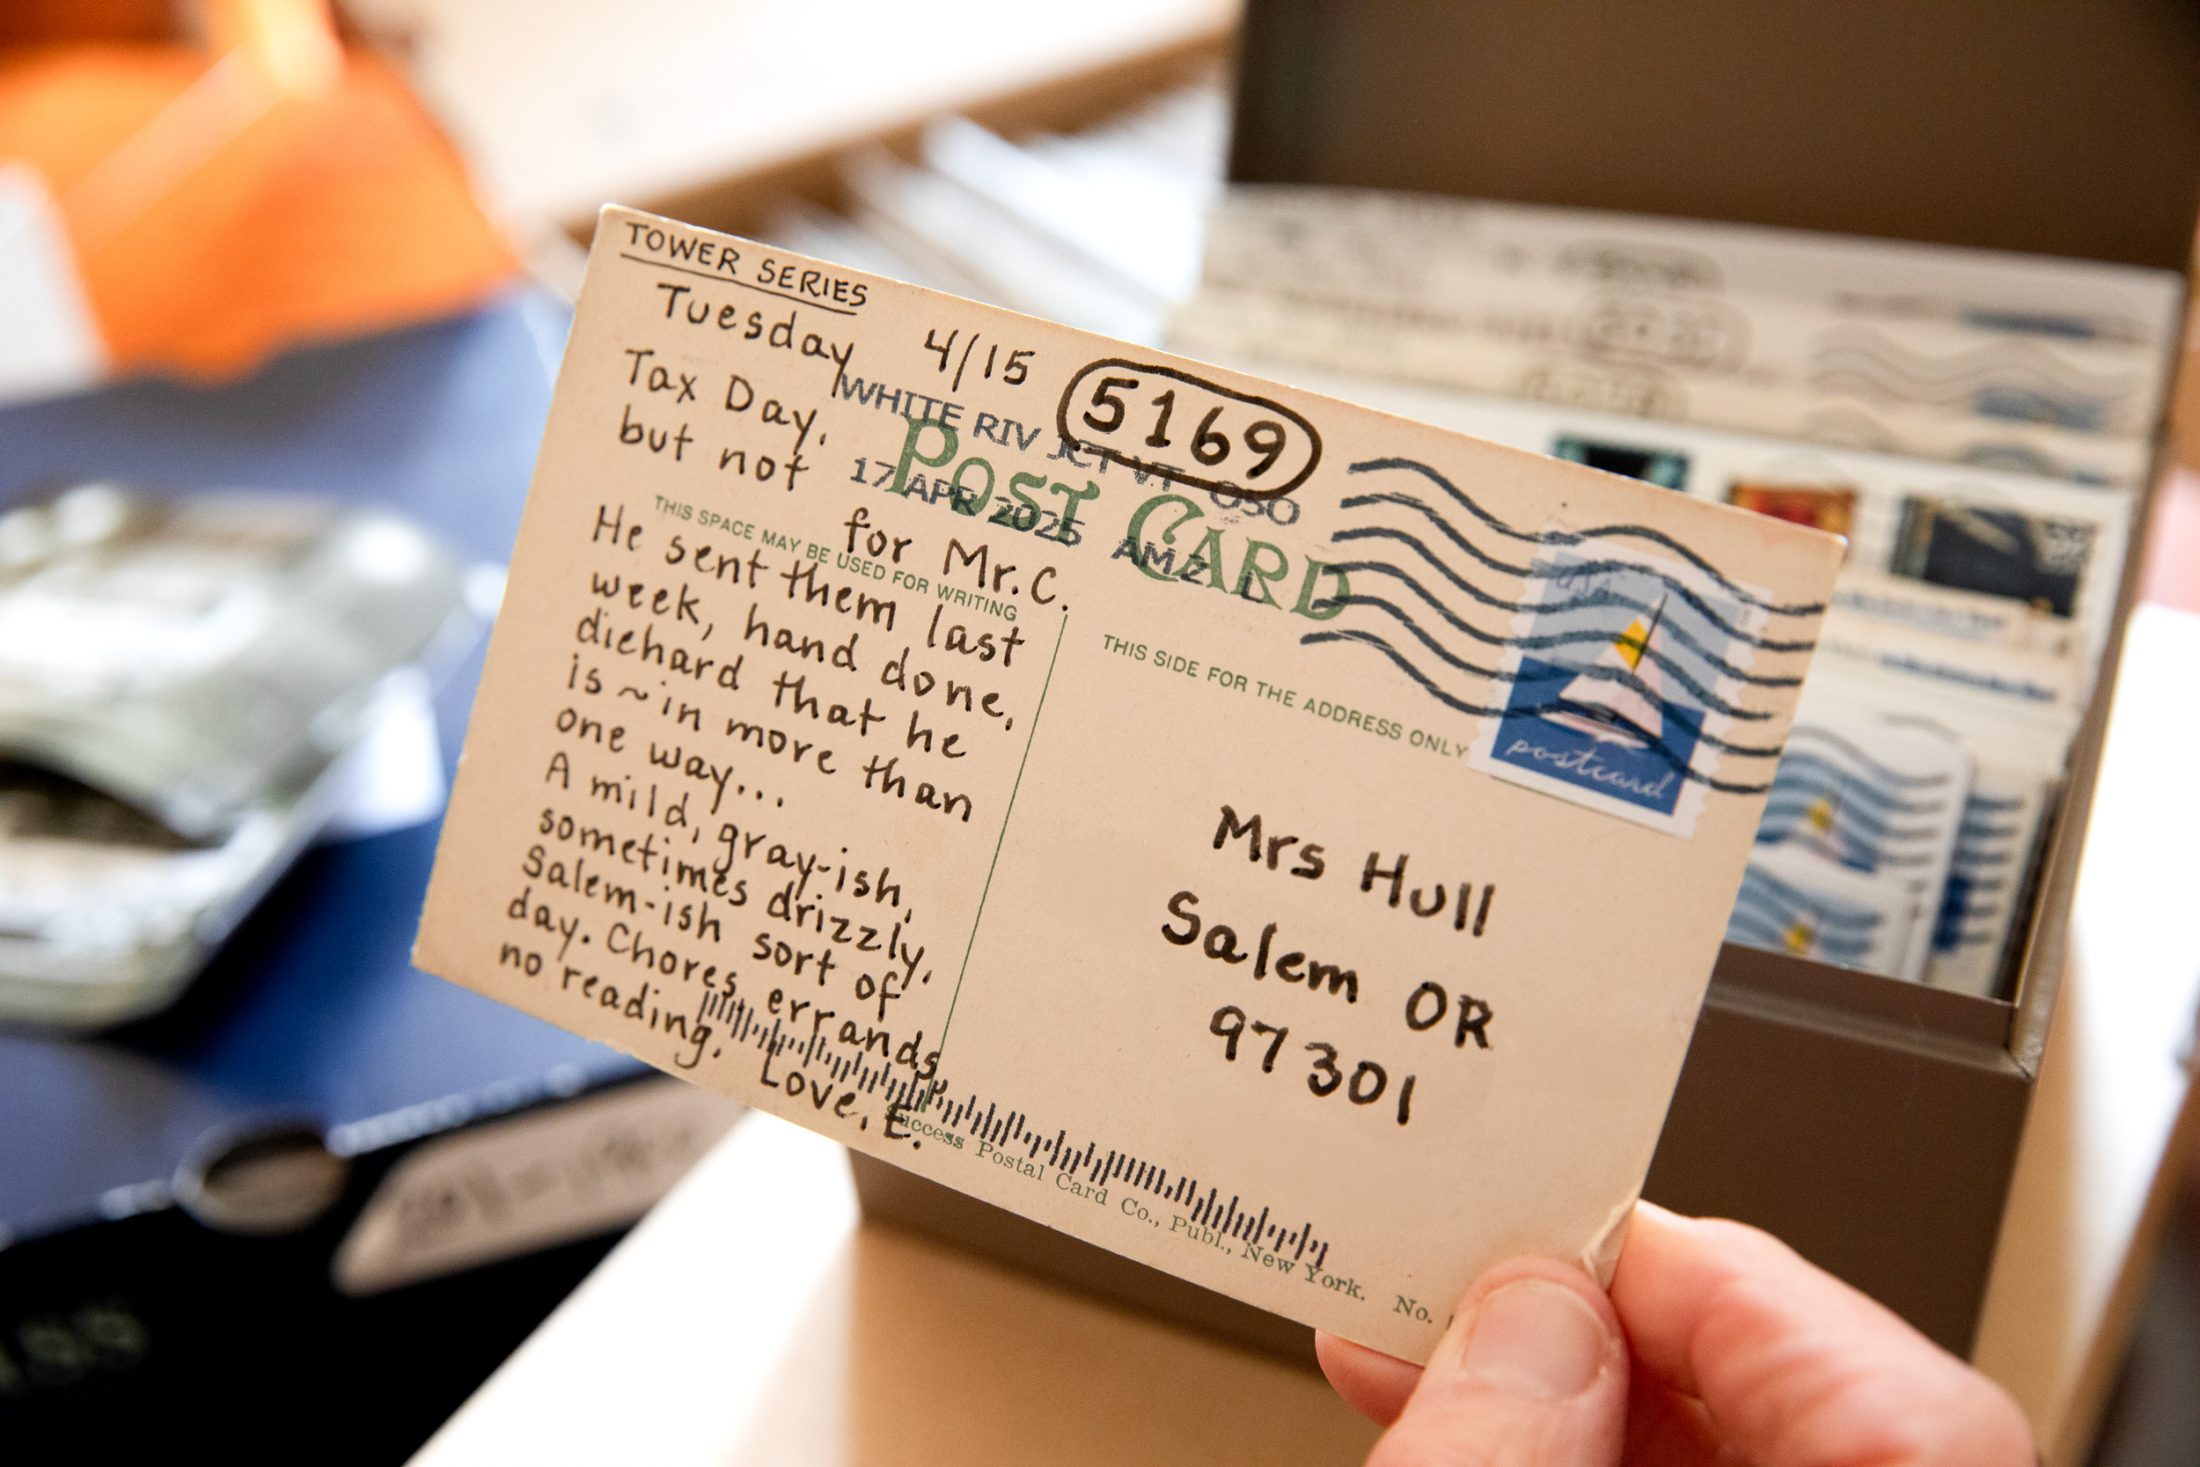 TOWER SERIES
Tuesday 4/15
5169
Tax Day,
but not
for Mr. C.
He sent them last
week, hand done,
diehard that he
is ~ in more than
one way...
A mild, gray-ish,
sometimes drizzly,
Salem-ish sort of
day. Chores, errands,
no reading. Love, E.
WHITE RIV JCT VT 050
17 APR 2025 AM 2 L
POST CARD
THIS SPACE MAY BE USED FOR WRITING
THIS SIDE FOR THE ADDRESS ONLY
USA
postcard
Mrs Hull
Salem OR
97301
Success Postal Card Co., Publ., New York. No.